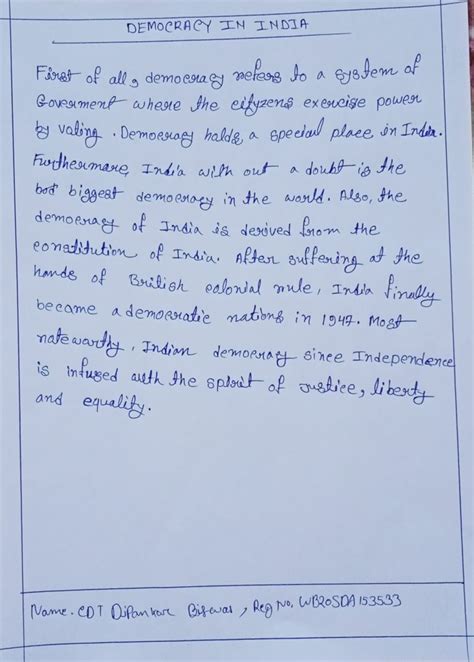 DEMOCRACY IN INDIA
First of all, democracy refers to a system of
Goverment where the cityzens exercise power
by valing. Democracy halds, a special place in India.
Furthermore, India with out a doubt is the
biggest democracy in the world. Also, the
democracy of India is derived from the
constitution of India. After suffering at the
hands of British calonial rule, India finally
became a democratic nations in 1947. Most
nateworthy, Indian democracy since Independence
is infused with the spirit of Justice, liberty
and equality.
Name. CDT Dipankar Biswas, Reg No. WB20SDA153533